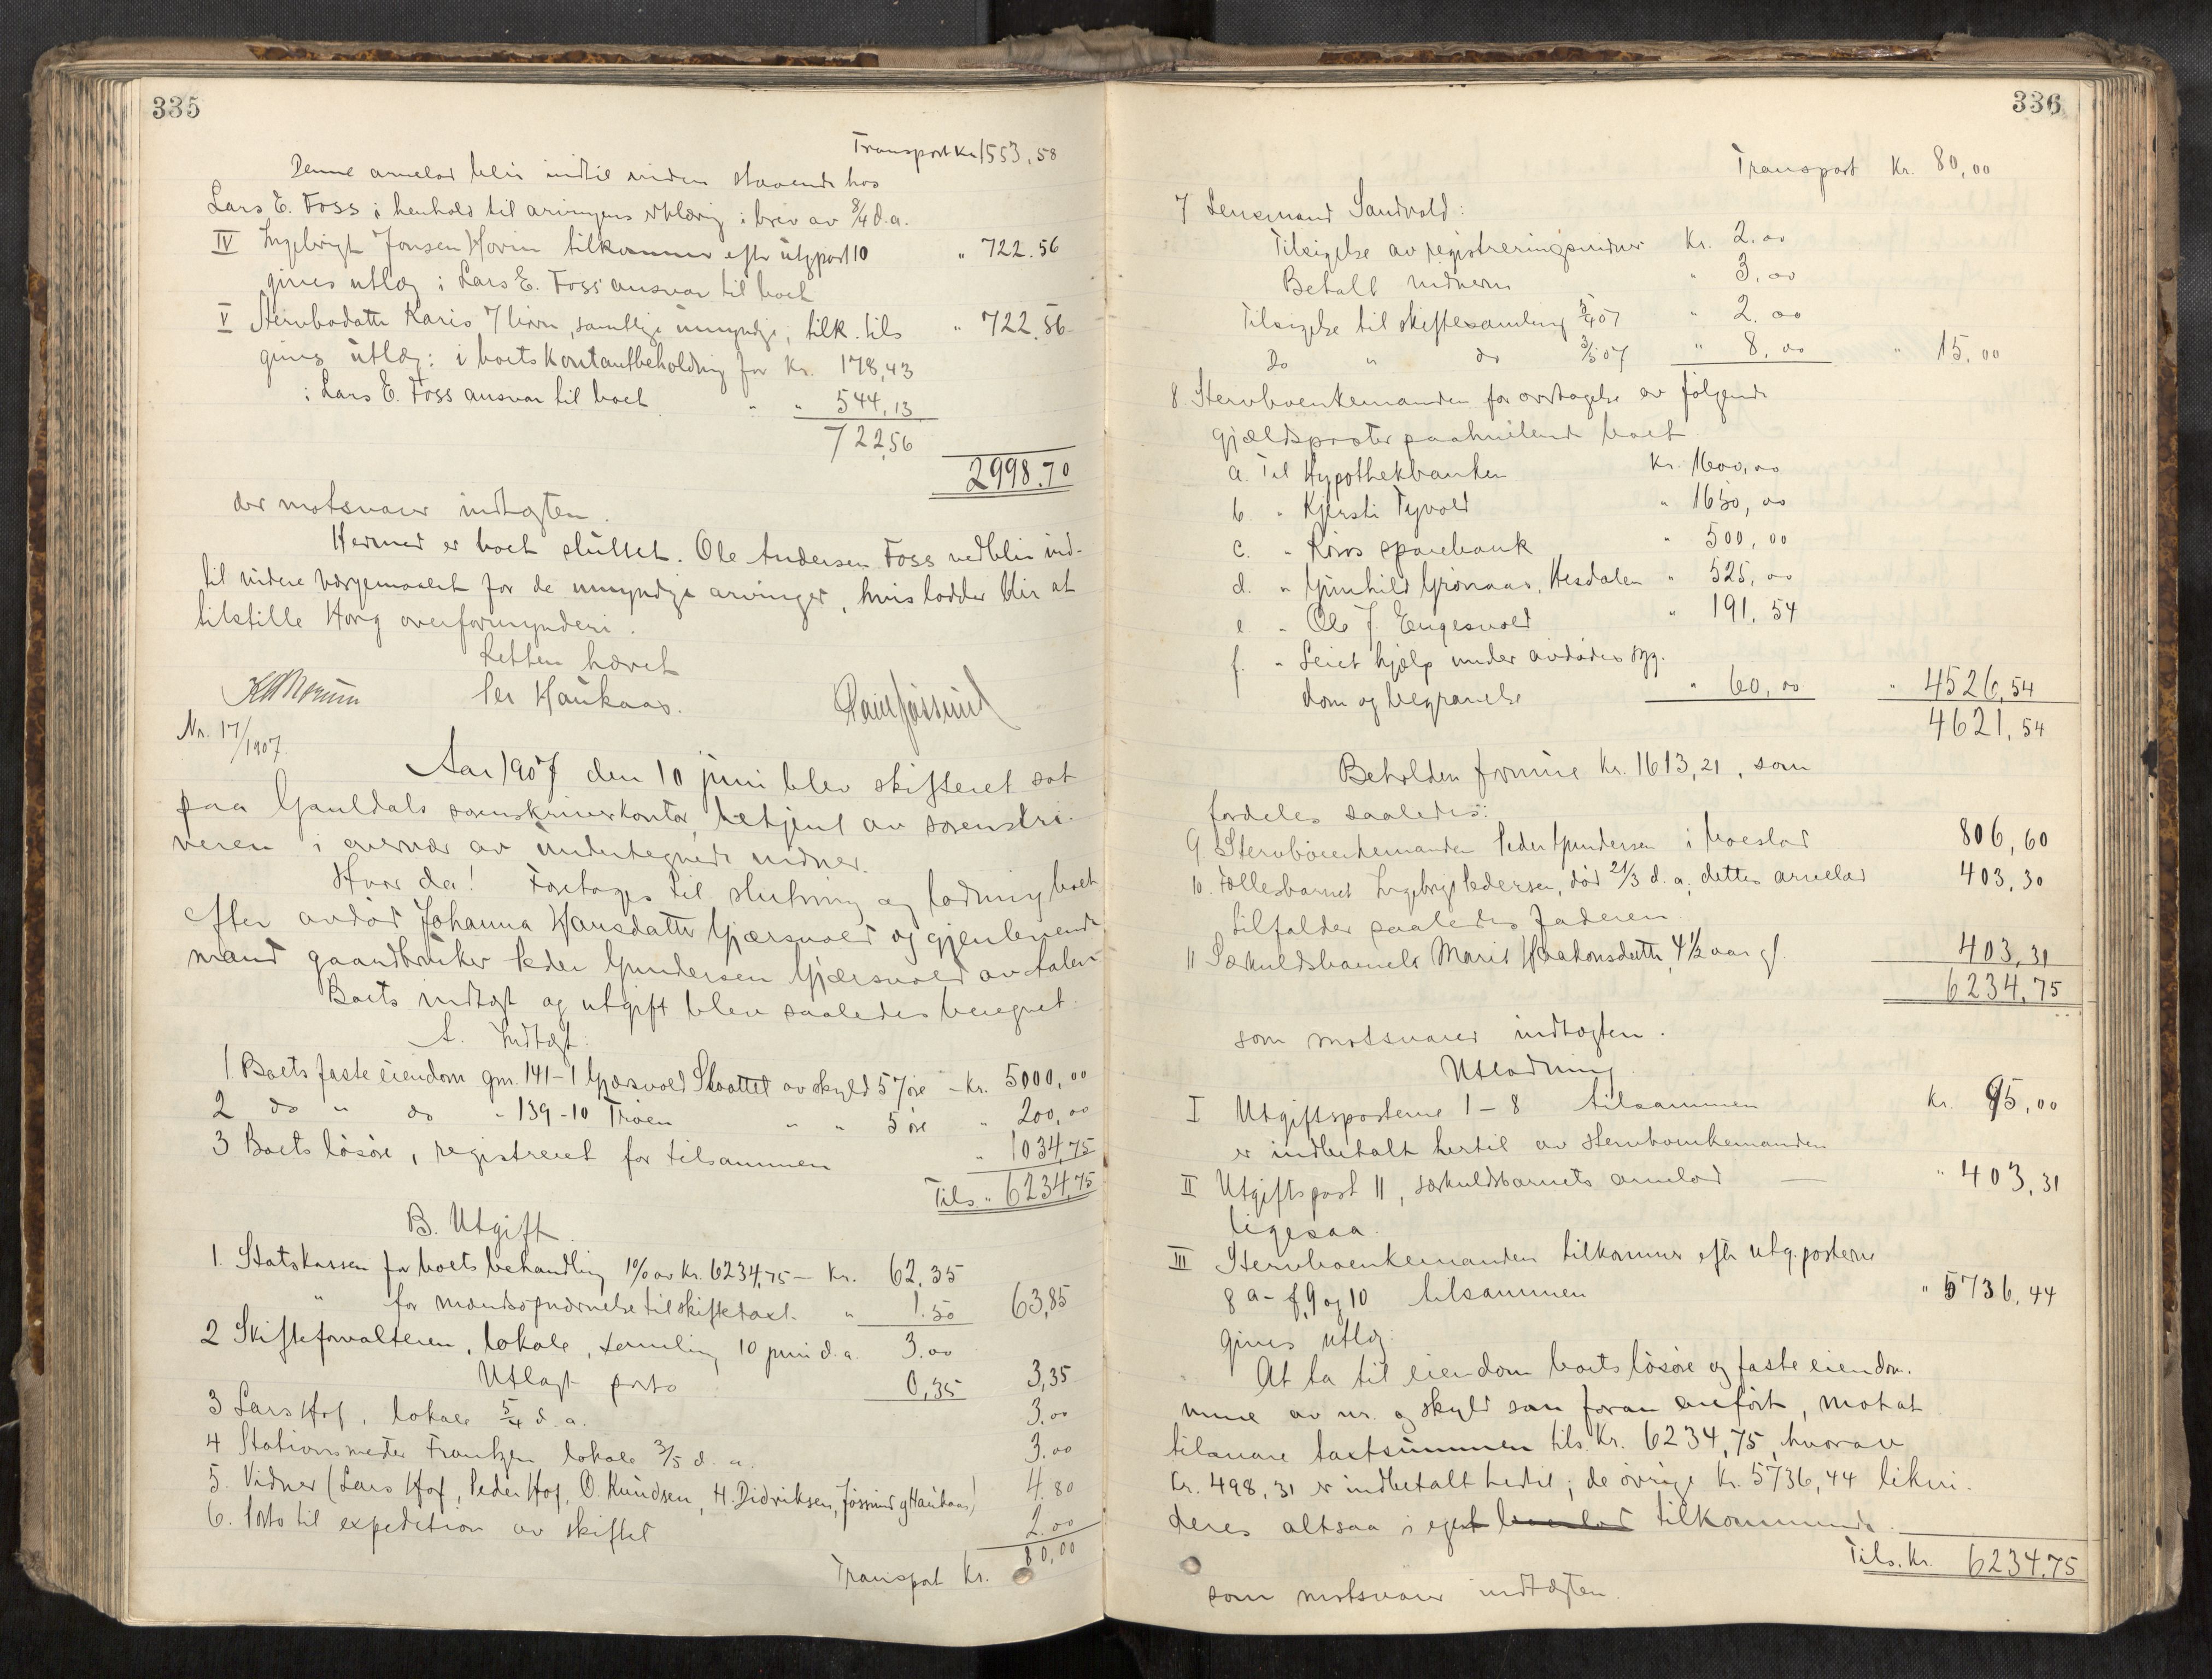 335
Transport Kr 1553,58
Denne arvelod blir indtil videre staaende hos
Lars E. Foss i henhold til arvingens erklæring i brev av 8/4 d.a.
IV Ingebrigt Jonsen Hovin tilkommer efter utgpost 10 " 722.56
gives utlæg i Lars E. Foss' ansvar til boet
V Stervbodatter Karis 7 børn, samtlige umyndige, tilk. tils " 722,56
gives utlæg: i boets kontantbeholdning for Kr. 178,43
i Lars E. Foss ansvar til boet " " 544,13
722,56
2998.70
der motsvarer indtægten.
Hermed er boet sluttet. Ole Andersen Foss vedblir ind-
til videre værgemaalet for de umyndige arvinger, hvis lodder blir at
tilstille Horg overformynderi.
Retten hævet
Per Haukaas. Paul Jøssund
Nr. 17/1907.
Aar 1907 den 10 juni blev skifteret sat
paa Gauldals sorenskriverkontor, betjent av sorenskri-
veren i overvær av undertegnede vidner.
Hvor da! Foretages til slutning og lodning boet
efter avdød Johanna Hansdatter Gjærsvold og gjenlevende
mand gaardbruker Peder Gundersen Gjærsvold av Aalen
Boets indtægt og utgift blev saaledes beregnet:
A. Indtægt:
1 Boets faste eiendom gnr. 141-1 Gjærsvold Slaattet av skyld 57 øre - Kr. 5000,00
2 do " do " 139-10 Trøen " " 5 øre " 200,00
3 Boets løsøre, registreret for tilsammen " 1034,75
Tils. " 6234,75
B. Utgift
1. Statskassen for boets behandling 1% av Kr. 6234,75 - Kr. 62,35
" for mændsopnævnelse til skiftetaxt. " 1.50 63,85
2 Skifteforvalteren, lokale, samling 10 juni d.a. 3.00
Utlagt porto 0,35 3,35
3 Lars Hof, lokale 5/4 d.a. 3.00
4 Stationsmester Frantzen lokale 3/5 d.a. 3.00
5. Vidner (Lars Hof, Peder Hof, O. Knudsen, H. Didriksen, Jøssund og Haukaas) 4.80
6. Porto til expedition av skiftet 2.00
Transport Kr. 80,00
336
Transport Kr. 80,00
7 Lensmand Sandvold:
Tilsigelse av registreringsvidner Kr. 2.00
Betalt vidnerne " 3,00
Tilsigelse til skiftesamling 5/4 07 " 2.00
Do " do 3/5 07 " 8,00 " 15,00
8. Stervboenkemanden for overtagelse av følgende
gjældsposter paahvilende boet
a. Til Hypothekbanken Kr. 1600,00
b. " Kjersti Tyvold " 1650,00
c. " Røros sparebank " 500,00
d. " Gunhild Grønaas, Hesdalen " 525,00
e " Ole J. Engesvold " 191,54
f. " Leiet hjælp under avdødes syg-
dom og begravelse " 60,00 " 4526,54
4621,54
Beholden formue Kr. 1613,21, som
fordeles saaledes:
9 Stervboenkemanden Peder Gundersen i boeslod 806,60
10. Fællesbarnet Ingebrigt Pedersen, død 21/3 d.a; dettes arvelod 403,30
tilfalder saaledes faderen
11 Særkuldsbarnet Marit Haakonsdatter, 4½ aar gl. 403,31
6234,75
som motsvarer indtægten.
Utlodning
I Utgiftsposterne 1-8 tilsammen Kr. 95,00
er indbetalt hertil av stervboenkemanden
II Utgiftspost 11, særkuldsbarnets arvelod — " 403,31
ligesaa.
III Stervboenkemanden tilkommer efter utg.posterne
8 a-f, 9 og 10 tilsammen " 5736,44
gives utlæg:
At ta til eiendom boets løsøre og faste eiendom-
mene av nr. og skyld som foran anført, mot at
tilsvare taxtsummen tils. Kr. 6234,75, hvorav
Kr. 498,31 er indbetalt hertil; de øvrige Kr. 5736,44 likvi-
deres altsaa i eget boeslod tilkommende.
Tils. Kr. 6234,75
som motsvarer indtægten.